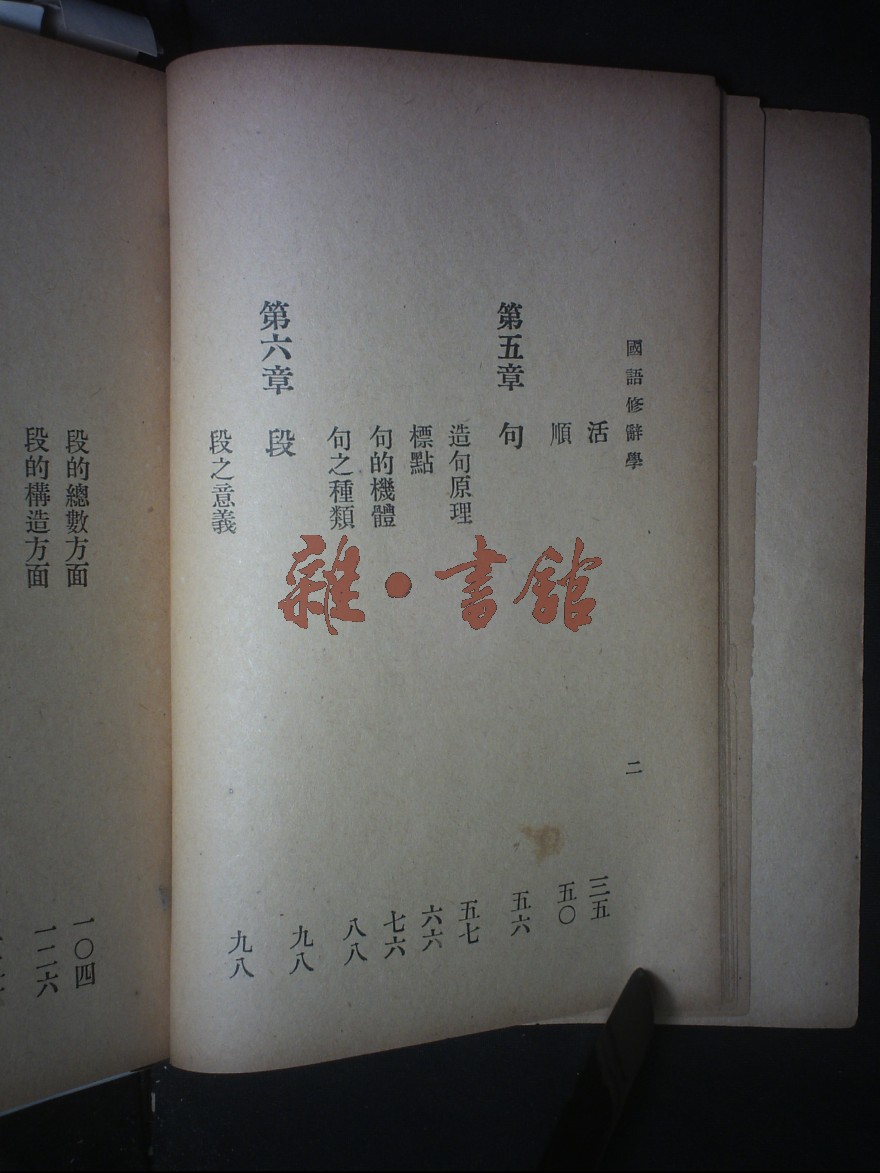 國語修辭學 二
活 三五
順 五〇
第五章 句 五六
造句原理 五七
標點 六六
句的機體 七六
句之種類 八八
第六章 段 九八
段之意義 九八
段的總數方面 一〇四
段的構造方面 一二六
雜·書舘